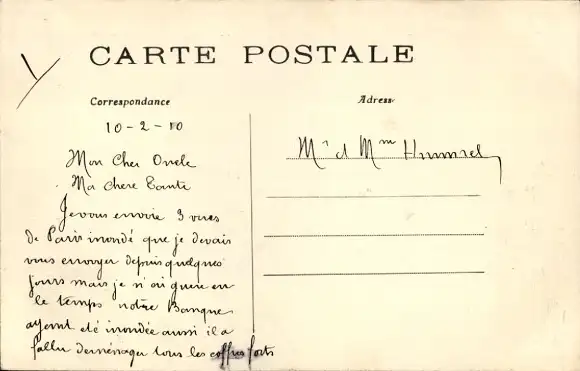 CARTE POSTALE
Correspondance
Adresse
10-2-10
Mr et Mme Hummel
Mon Cher Oncle
Ma chere Tante
Je vous envoie 3 vues
de Paris inondé que je devais
vous envoyer depuis quelques
jours mais je n'ai guère eu
le temps notre Banque
ayant été inondée aussi il a
fallu deménager tous les coffres forts